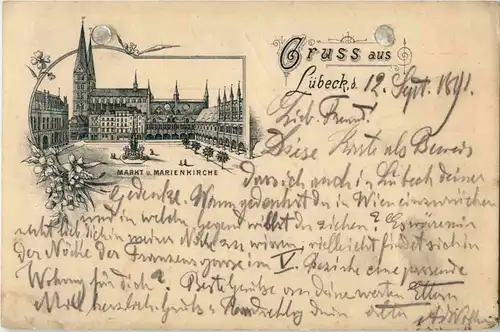 Gruss aus
Lübeck, d. 12. Sept. 1891.
MARKT U. MARIENKIRCHE
Lieb. Freund!
Diese Karte als Beweis
dass ich auch in Lübeck deiner
Gedenke. Wann gedenkst du in Wien einzurücken
und in welche Gegend willst du ziehen? Es wäre
nicht dich in meiner Nähe zu wissen, vielleicht findet sich in
der Nähe der Franzensgasse im V. Bezirke eine passende
Wohnung für dich? Beste Grüße an deine werten Eltern
herzlich Grüßt dein alter